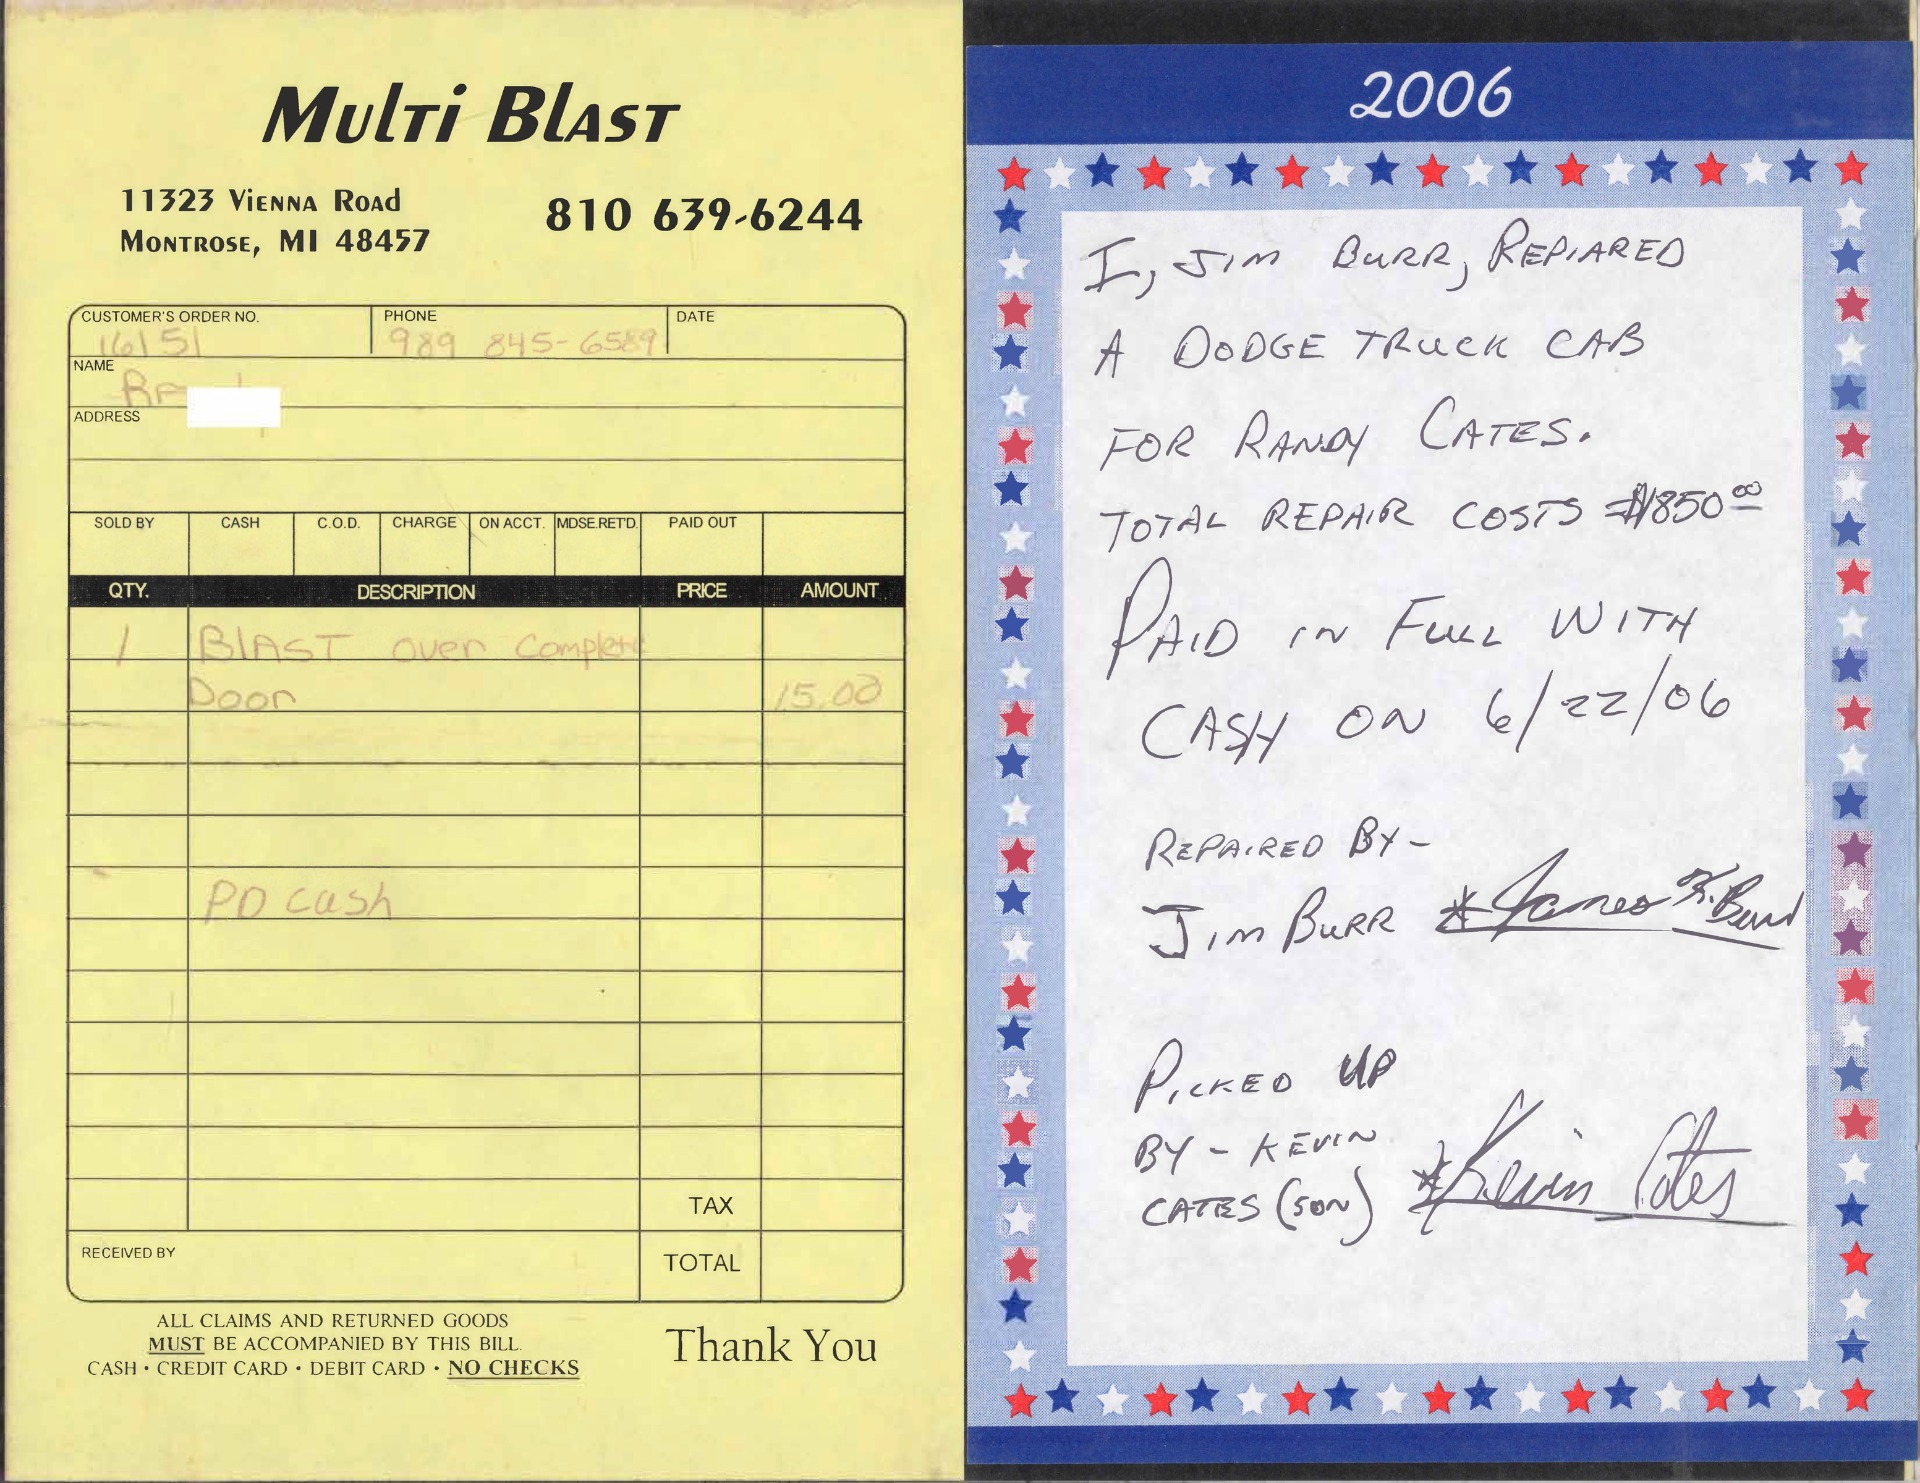 Multi Blast
11323 Vienna Road
Montrose, MI 48457
810 639-6244
CUSTOMER'S ORDER NO.
16151
PHONE
989 845-6589
DATE
NAME
ADDRESS
SOLD BY CASH C.O.D. CHARGE ON ACCT. MDSE.RET'D. PAID OUT
QTY. DESCRIPTION PRICE AMOUNT
1 BLAST over Complete
Door 15.00
PD cash
TAX
RECEIVED BY
TOTAL
ALL CLAIMS AND RETURNED GOODS
MUST BE ACCOMPANIED BY THIS BILL.
CASH · CREDIT CARD · DEBIT CARD · NO CHECKS
Thank You
2006
I, JIM BURR, REPIARED
A DODGE TRUCK CAB
FOR RANDY CATES.
TOTAL REPAIR COSTS $1850 00
PAID IN FULL WITH
CASH ON 6/22/06
REPAIRED BY-
JIM BURR *James F. Burr
PICKED UP
BY - KEVIN
CATES (SON) *Kevin Cates